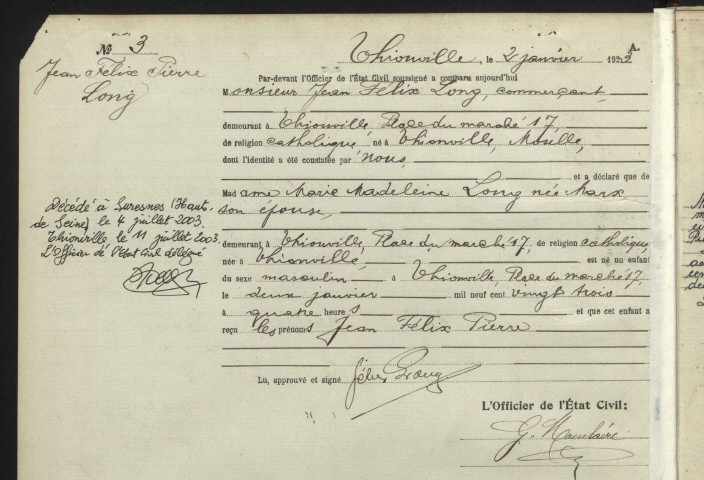 № 3
Jean Félix Pierre
Long
Thionville, le 2 janvier 192
Par-devant l'Officier de l'État Civil soussigné a comparu aujourd'hui
Monsieur Jean Félix Long, commerçant,
demeurant à Thionville, Place du marché 17,
de religion catholique, né à Thionville, Moselle,
dont l'identité a été constatée par nous,
et a déclaré que de
Madame Marie Madeleine Long née Marx
son épouse,
demeurant à Thionville, Place du marché 17, de religion catholique,
née à Thionville, est né un enfant
du sexe masculin à Thionville, Place du marché 17,
le deux janvier mil neuf cent vingt trois
à quatre heures et que cet enfant a
reçu les prénoms Jean Félix Pierre
Décédé à Suresnes (Hauts-
de Seine) le 4 juillet 2003.
Thionville, le 11 juillet 2003.
L'Officier de l'Etat Civil délégué
Lu, approuvé et signé Félix Long
L'Officier de l'État Civil: